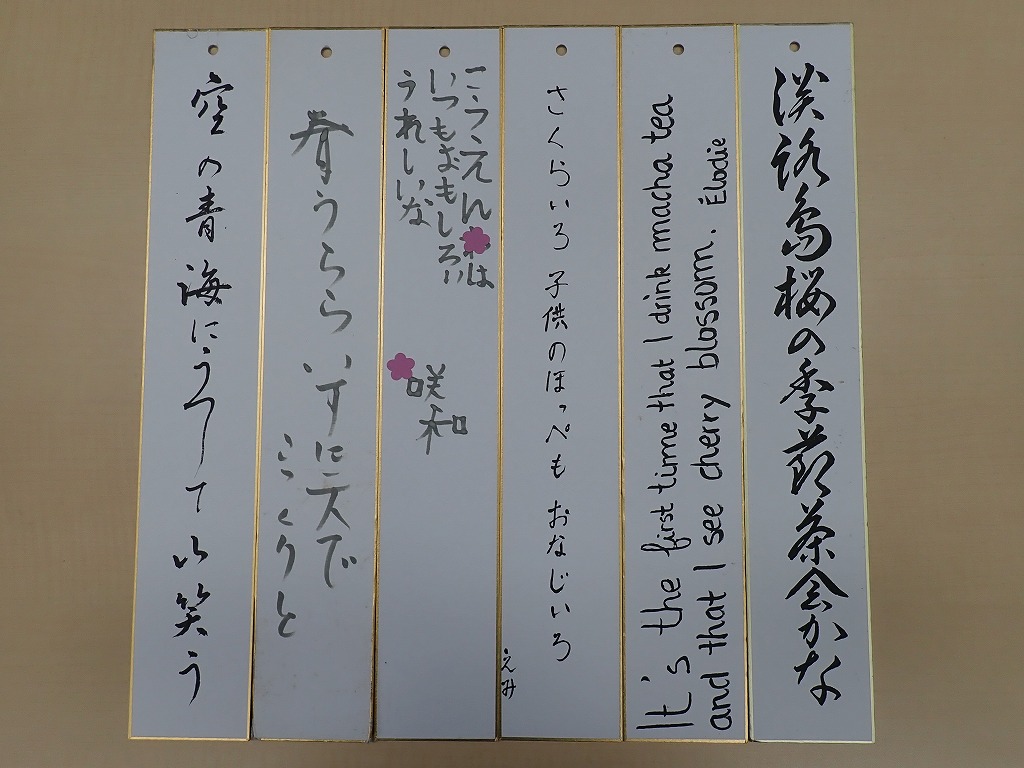 淡路島桜の季節茶会かな
It's the first time that I drink macha tea
and that I see cherry blossom. Élodie
さくらいろ 子供のほっぺも おなじいろ
えみ
こうえんは
いつもおもしろい
うれしいな
咲和
春うらら いすに二人で
こっくりと
空の青 海にうつして 山笑う